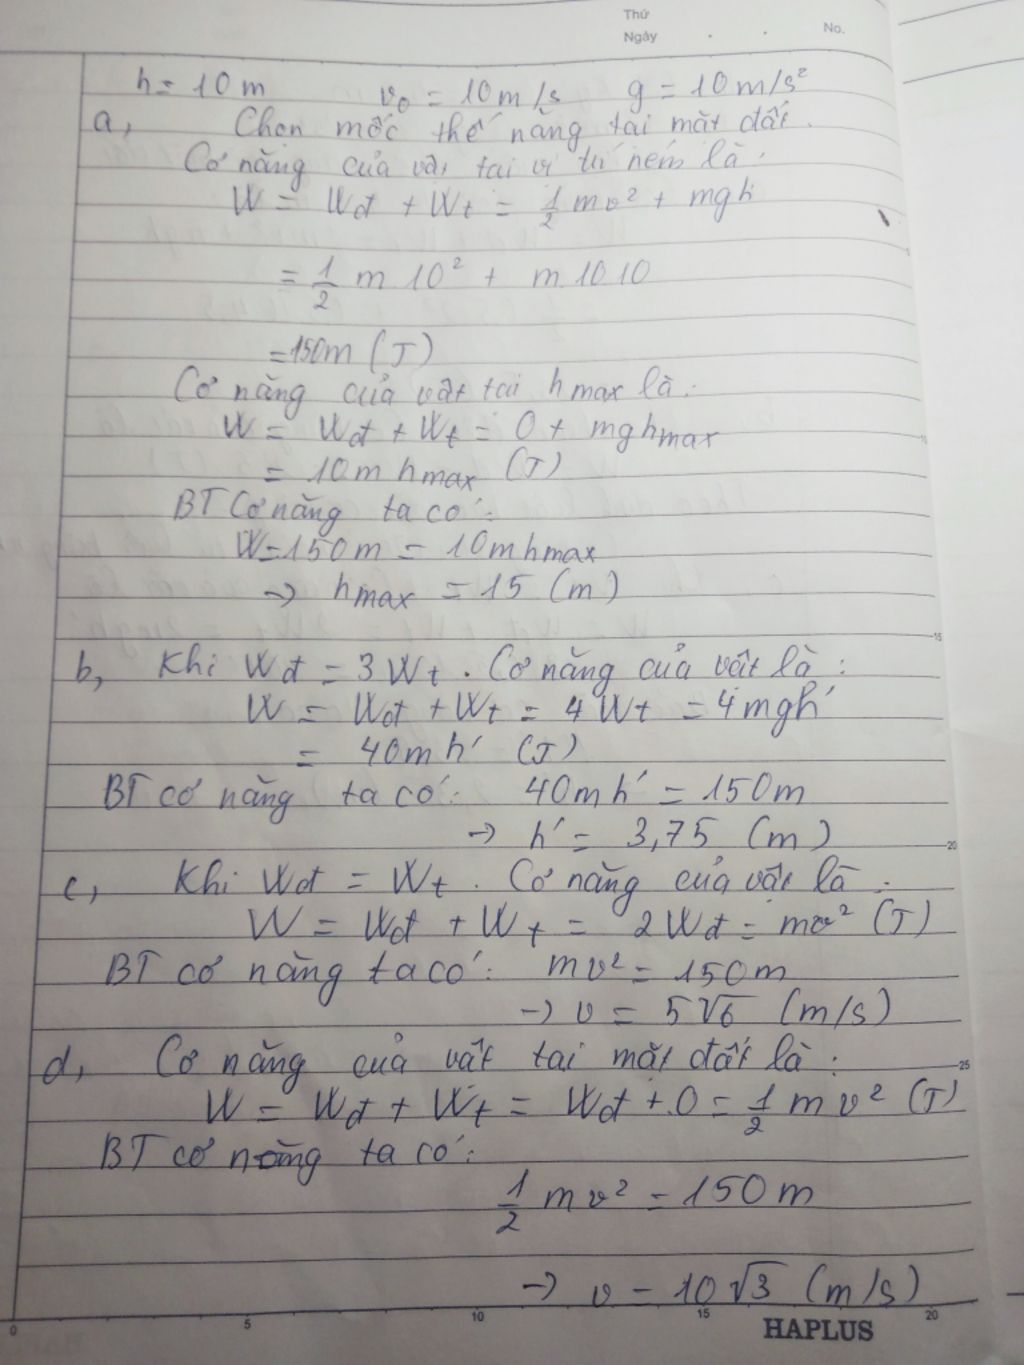 Thứ
Ngày . . No.
h = 10 m v₀ = 10 m/s g = 10 m/s²
a, Chọn mốc thế năng tại mặt đất.
Cơ năng của vật tại vị trí ném là:
W = Wđ + Wt = 1/2 mv² + mgh
= 1/2 m 10² + m.10.10
= 150m (J)
Cơ năng của vật tại hmax là:
W = Wđ + Wt = 0 + mghmax
= 10m hmax (J)
BT Cơ năng ta có:
W = 150m = 10mhmax
→ hmax = 15 (m)
b, Khi Wđ = 3Wt. Cơ năng của vật là:
W = Wđ + Wt = 4Wt = 4mgh'
= 40mh' (J)
BT cơ năng ta có: 40mh' = 150m
→ h' = 3,75 (m)
c, Khi Wđ = Wt. Cơ năng của vật là:
W = Wđ + Wt = 2Wđ = mv² (J)
BT cơ năng ta có: mv² = 150m
→ v = 5√6 (m/s)
d, Cơ năng của vật tại mặt đất là:
W = Wđ + Wt = Wđ + 0 = 1/2 mv² (J)
BT cơ năng ta có:
1/2 mv² = 150m
→ v = 10√3 (m/s)
0 5 10 15 20
HAPLUS